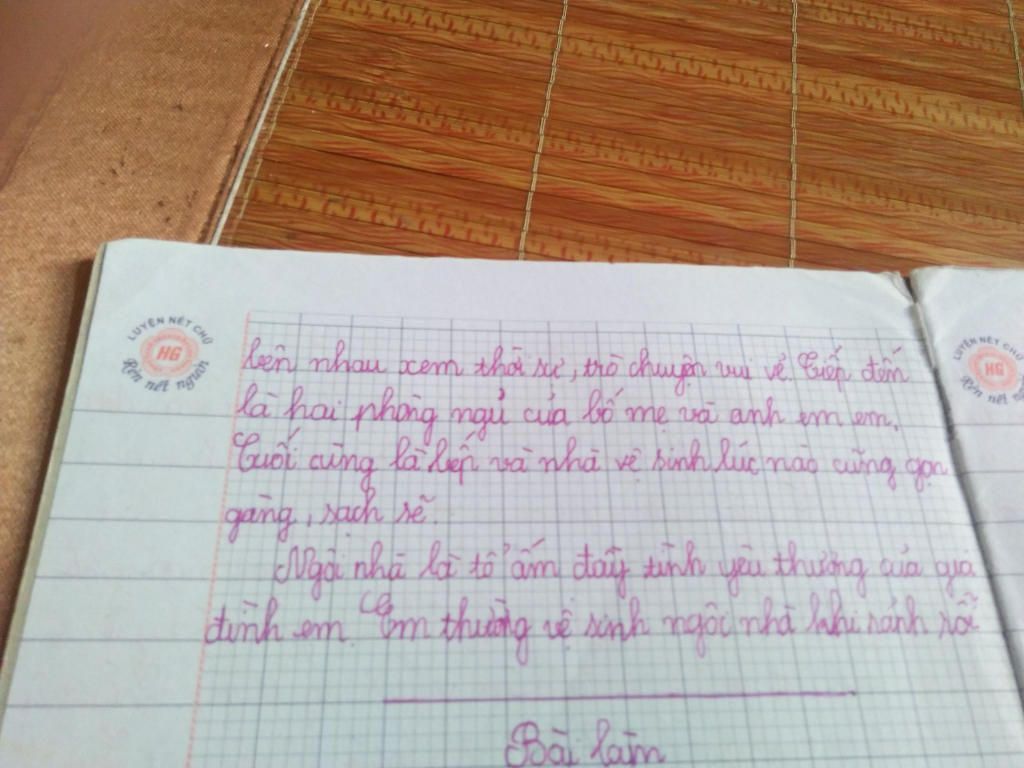 LUYỆN NÉT CHỮ
HG
Rèn nết người
bên nhau xem thời sự, trò chuyện vui vẻ. Tiếp đến
là hai phòng ngủ của bố mẹ và anh em em.
Cuối cùng là bếp và nhà vệ sinh lúc nào cũng gọn
gàng, sạch sẽ.
Ngôi nhà là tổ ấm đầy tình yêu thương của gia
đình em. Em thường vệ sinh ngôi nhà khi rảnh rỗi
Bài làm
LUYỆN NÉT CHỮ
HG
Rèn nết